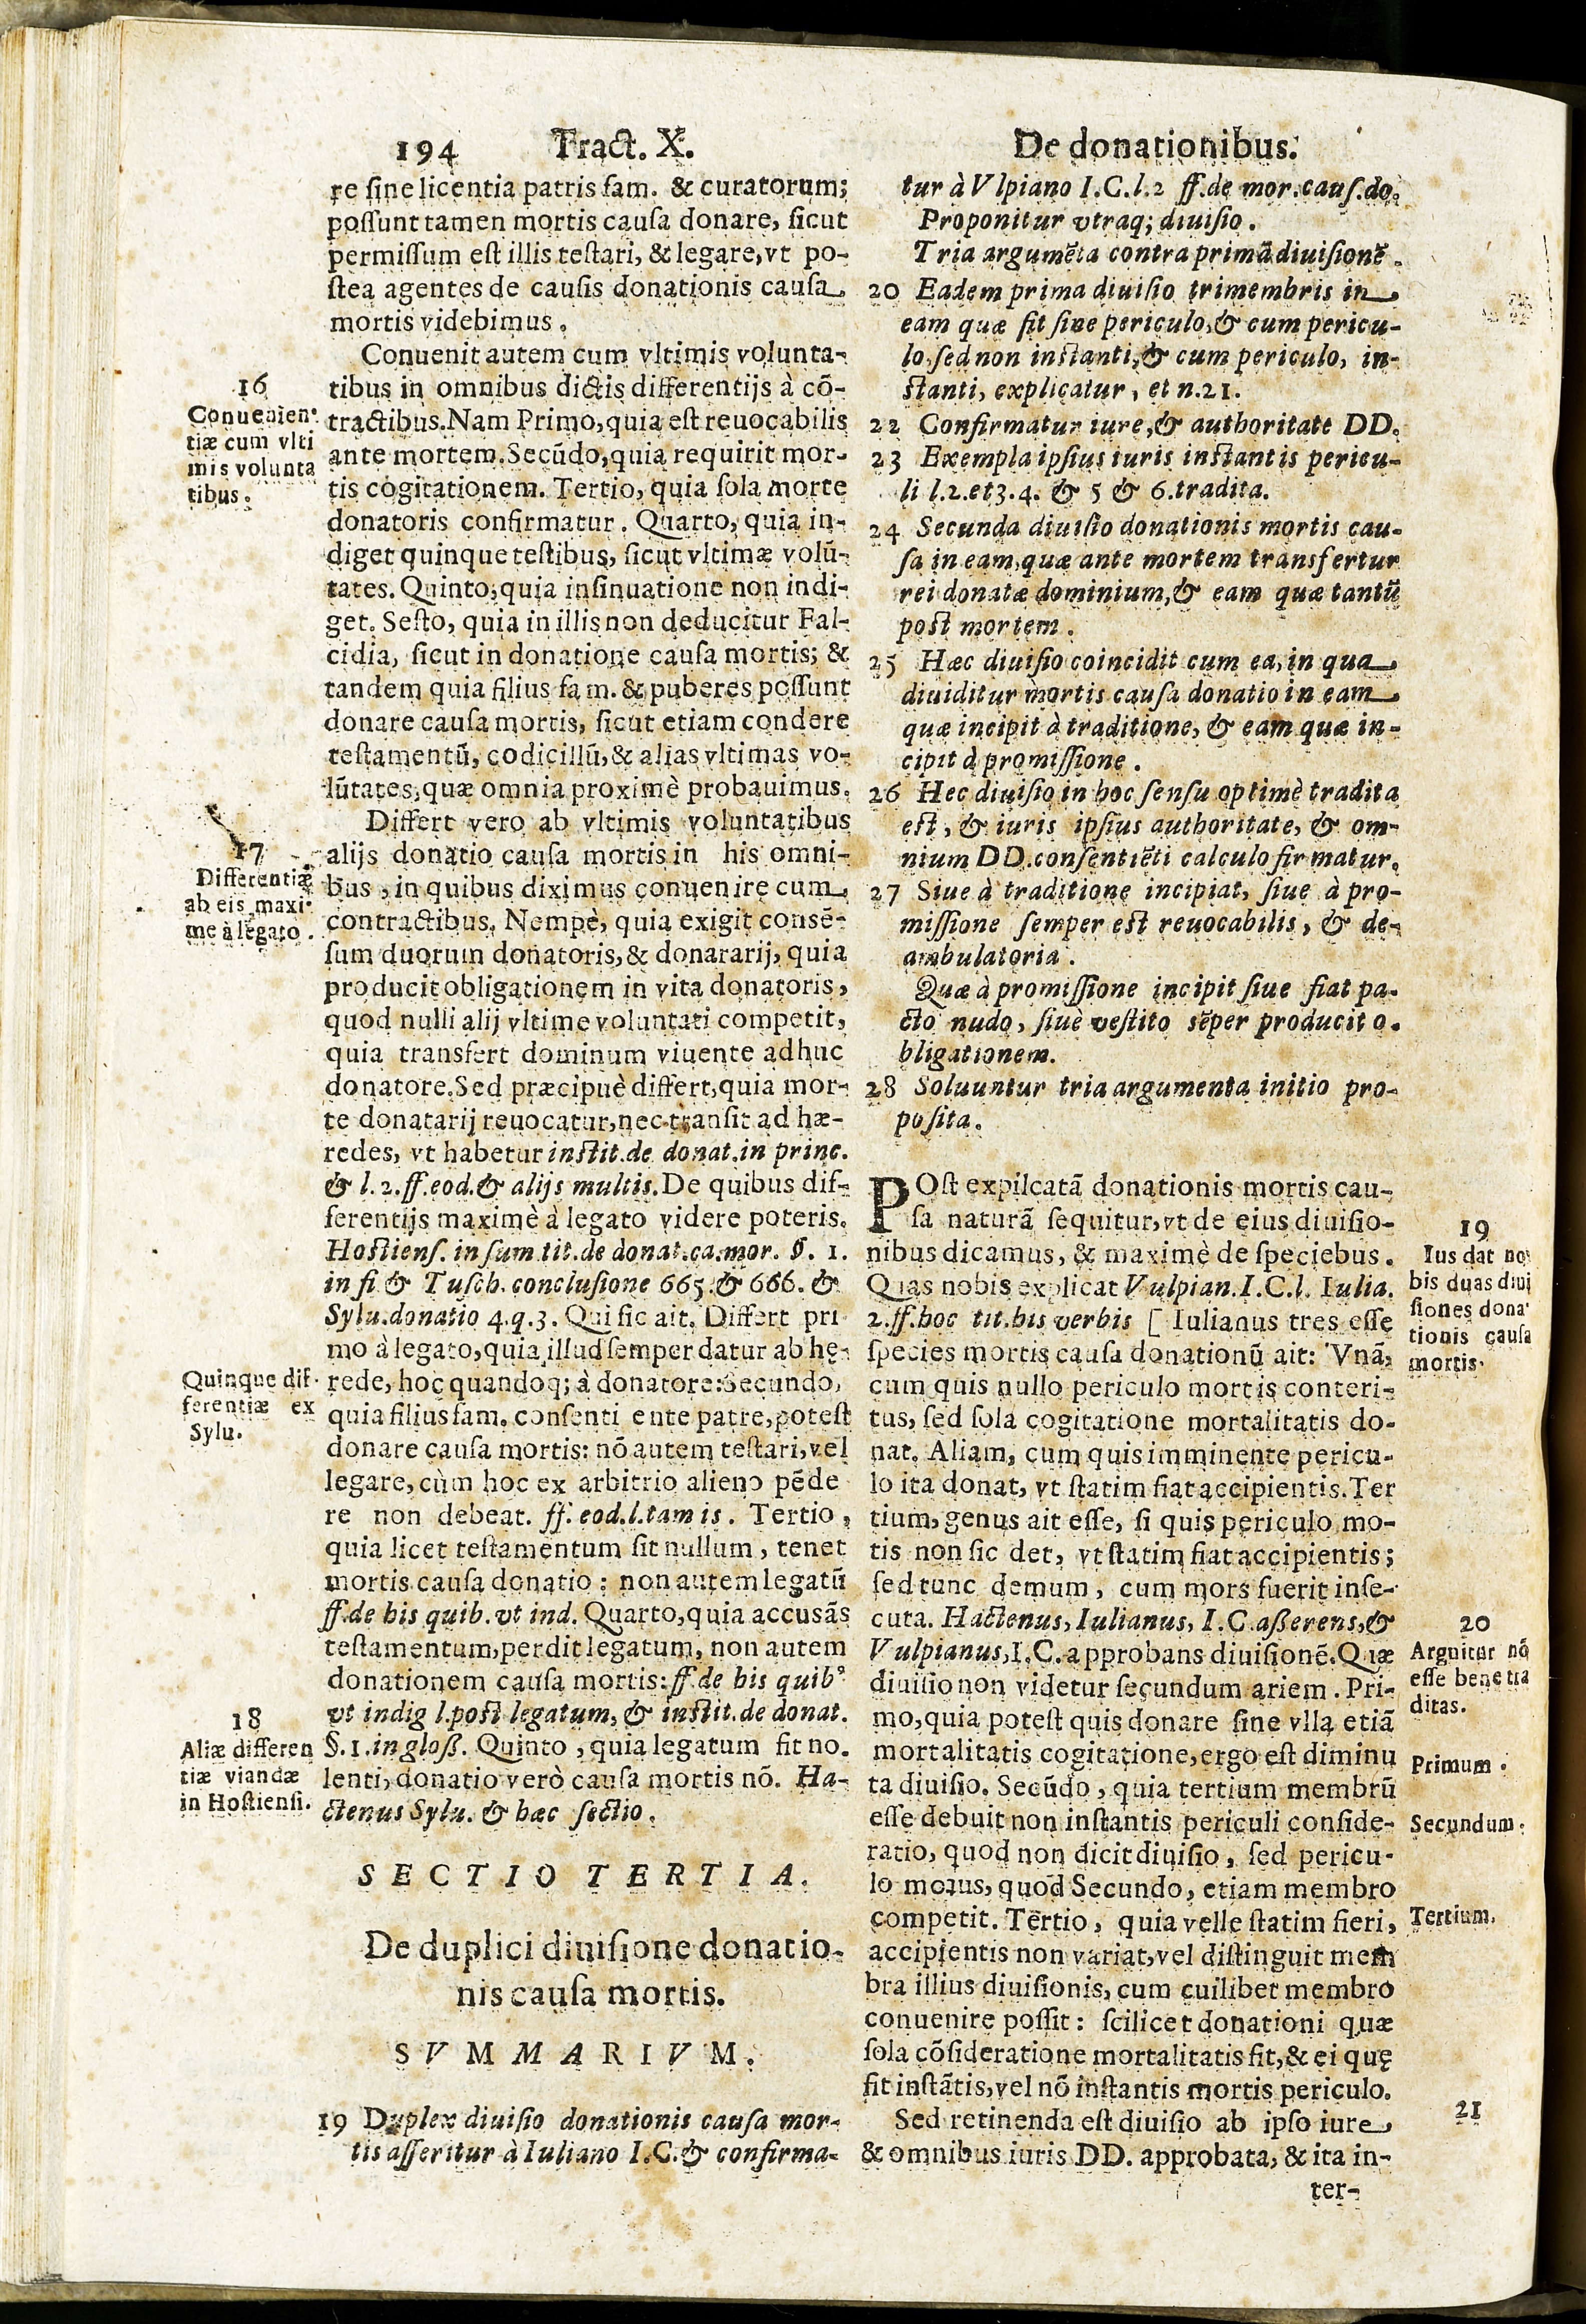 194 Tract. X. De donationibus.
re sine licentia patris fam. & curatorum;
possunt tamen mortis causa donare, sicut
permissum est illis testari, & legare, vt po-
stea agentes de causis donationis causa
mortis videbimus.
Conuenit autem cum vltimis volunta-
16
Conuenien-
tiæ cum vlti
mis volunta
tibus.
tibus in omnibus dictis differentijs à cō-
tractibus. Nam Primo, quia est reuocabilis
ante mortem. Secūdo, quia requirit mor-
tis cogitationem. Tertio, quia sola morte
donatoris confirmatur. Quarto, quia in-
diget quinque testibus, sicut vltimæ volū-
tates. Quinto, quia insinuatione non indi-
get. Sesto, quia in illis non deducitur Fal-
cidia, sicut in donatione causa mortis; &
tandem quia filius fam. & puberes possunt
donare causa mortis, sicut etiam condere
testamentū, codicillū, & alias vltimas vo-
lūtates, quæ omnia proximè probauimus.
Differt vero ab vltimis voluntatibus
17
Differentiæ
ab eis maxi-
me à legato.
alijs donatio causa mortis in his omni-
bus, in quibus diximus conuenire cum
contractibus. Nempè, quia exigit consē-
sum duorum donatoris, & donararij, quia
producit obligationem in vita donatoris,
quod nulli alij vltime voluntati competit,
quia transfert dominum viuente adhuc
donatore. Sed præcipuè differt, quia mor-
te donatarij reuocatur, nec transit ad hæ-
redes, vt habetur instit. de donat. in princ.
& l. 2. ff. eod. & alijs multis. De quibus dif-
ferentijs maximè à legato videre poteris.
Hostiens. in sum tit. de donat. ca. mor. §. 1.
in fi & Tusch. conclusione 665. & 666. &
Sylu. donatio 4. q. 3. Qui sic ait. Differt pri
mo à legato, quia illud semper datur ab hę-
Quinque dif-
ferentiæ ex
Sylu.
rede, hoc quandoq; à donatore: Secundo,
quia filius fam. consenti ente patre, potest
donare causa mortis: nō autem testari, vel
legare, cùm hoc ex arbitrio alieno pēde
re non debeat. ff. eod. l. tam is. Tertio,
quia licet testamentum sit nullum, tenet
mortis causa donatio: non autem legatū
ff. de his quib. vt ind. Quarto, quia accusās
testamentum, perdit legatum, non autem
donationem causa mortis: ff. de his quib'
vt indig l. post legatum, & instit. de donat.
18
Aliæ differen
tiæ viandæ
in Hostiensi.
§. 1. in gloß. Quinto, quia legatum fit no.
lenti, donatio verò causa mortis nō. Ha-
ctenus Sylu. & hæc sectio.
SECTIO TERTIA.
De duplici diuisione donatio-
nis causa mortis.
SVMMARIVM.
19 Duplex diuisio donationis causa mor-
tis asseritur à Iuliano I.C. & confirma-
tur à Vlpiano I.C. l. 2 ff. de mor. caus. do.
Proponitur vtraq; diuisio.
Tria argumēta contra primā diuisionē.
20 Eadem prima diuisio trimembris in
eam quæ fit sine periculo, & cum pericu-
lo, sed non instanti, & cum periculo, in-
stanti, explicatur, et n. 21.
22 Confirmatur iure, & authoritate DD.
23 Exempla ipsius iuris instantis pericu-
li l. 2. et 3. 4. & 5 & 6. tradita.
24 Secunda diuisio donationis mortis cau-
sa in eam, quæ ante mortem transfertur
rei donatæ dominium, & eam quæ tantū
post mortem.
25 Hæc diuisio coincidit cum ea, in qua
diuiditur mortis causa donatio in eam
quæ incipit à traditione, & eam quæ in-
cipit à promissione.
26 Hec diuisio in hoc sensu optimè tradita
est, & iuris ipsius authoritate, & om-
nium DD. consentiēti calculo firmatur.
27 Siue à traditione incipiat, siue à pro-
missione semper est reuocabilis, & de-
ambulatoria.
Quæ à promissione incipit siue fiat pa-
cto nudo, siuè vestito sēper producit o-
bligationem.
28 Soluuntur tria argumenta initio pro-
posita.
POst expilcatā donationis mortis cau-
sa naturā sequitur, vt de eius diuisio-
19
Ius dat no
bis duas diui
siones dona-
tionis causa
mortis.
nibus dicamus, & maximè de speciebus.
Quas nobis explicat Vulpian. I.C. l. Iulia.
2. ff. hoc tit. his verbis [ Iulianus tres esse
species mortis causa donationū ait: Vnā,
cum quis nullo periculo mortis conteri-
tus, sed sola cogitatione mortalitatis do-
nat. Aliam, cum quis imminente pericu-
lo ita donat, vt statim fiat accipientis. Ter
tium, genus ait esse, si quis periculo mo-
tis non sic det, vt statim fiat accipientis;
sed tunc demum, cum mors fuerit inse-
cuta. Hactenus, Iulianus, I.C. aßerens, &
20
Arguitur nō
esse bene tra
ditas.
Vulpianus, I.C. approbans diuisionē. Quæ
diuisio non videtur secundum ariem. Pri-
mo, quia potest quis donare sine vlla etiā
mortalitatis cogitatione, ergo est diminu
Primum.
ta diuisio. Secūdo, quia tertium membrū
esse debuit non instantis periculi conside-
Secundum.
ratio, quod non dicit diuisio, sed pericu-
lo motus, quod Secundo, etiam membro
competit. Tertio, quia velle statim fieri,
Tertium.
accipientis non variat, vel distinguit mem
bra illius diuisionis, cum cuilibet membro
conuenire possit: scilicet donationi quæ
sola cōsideratione mortalitatis fit, & ei quę
fit instātis, vel nō instantis mortis periculo.
Sed retinenda est diuisio ab ipso iure,
21
& omnibus iuris DD. approbata, & ita in-
ter-